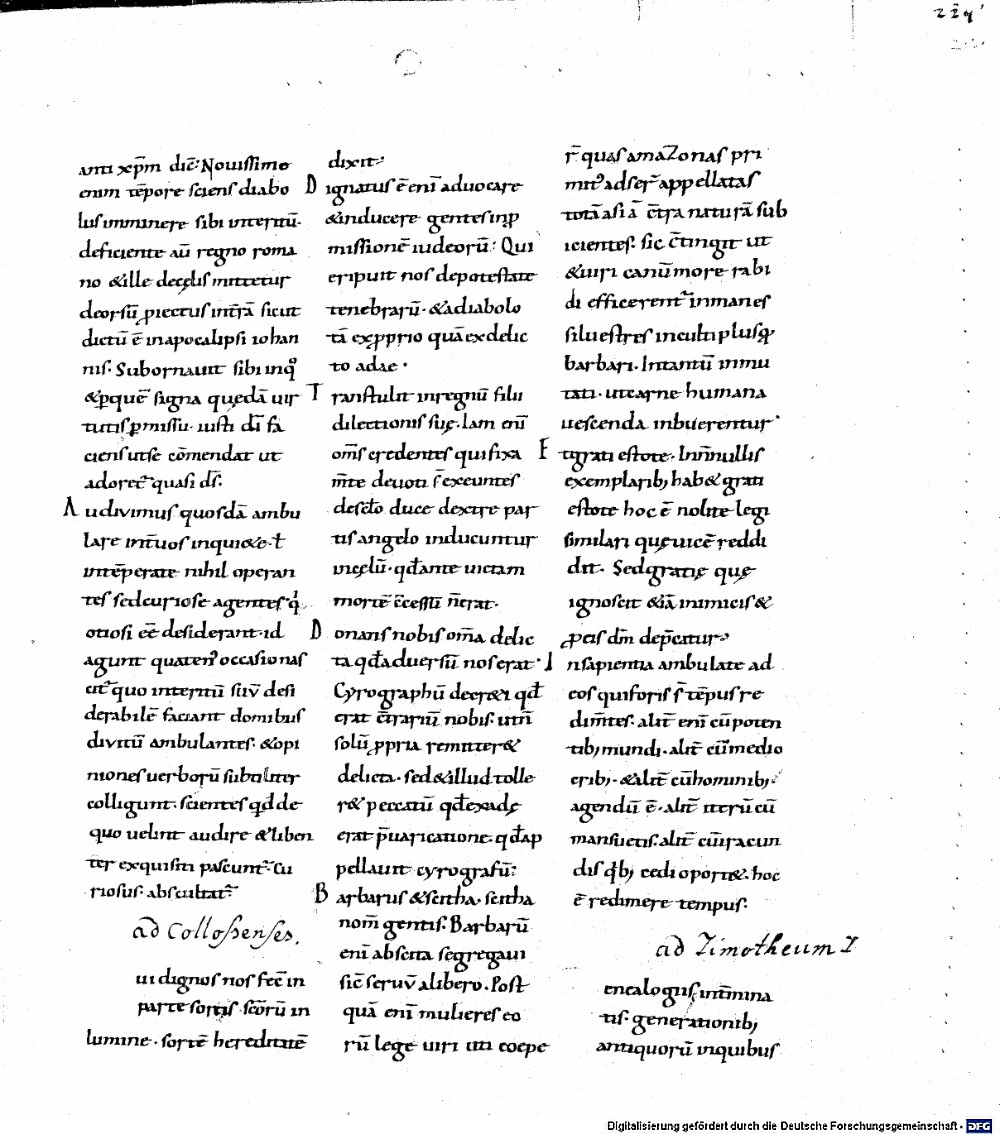 224'
anti xp̄m dic̄ Nouissimo
enim tēpore sciens diabo
lus imminere sibi interitū.
deficiente aū regno roma
no &ille decęlis mittetur
deorsū piectus intrā sicut
dictū ē inapocalipsi iohan
nis. Subornauit sibi inq
&pquē signa quędā uir
tutis pmissu. iusti dī fa
ciens utse cōmendat ut
adoret quasi ds̄.
Audivimus quosdā ambu
lare int̄uos inqui&e. ł
intēperate nihil operan
tes sedcuriose agentes q
otiosi eē desiderant. id
agunt quaten occasionas
cit quo interitū suū desi
derabilē faciant domibus
divitū ambulantes. &opi
niones uerborū subtiliter
colligunt. scientes qđ de
quo uelint audire &liben
ter exquisiti pascunt. Cu
riosus. abscultat
ad Collossenses.
ui dignos nos fec̄ in
parte sortis scōrū in
lumine. sortē hereditatē
dixit
Dignatus ē enī aduocare
&inducere gentes inp
missionē iudeorū. Qui
eripuit nos depotestate
tenebrarū. &adiabolo
tā expprio quā exdelic
to adae.
Transtulit inregnū filii
dilectionis suę. Iam enī
om̄s credentes quifixa
m̄te deuoti s̄ exeuntes
desc̄lo duce dextre par
tis angelo inducuntur
incęlū. qđante uictam
mortē c̄cessū n̄erat.
Donans nobis om̄a delic
ta qđaduersū nos erat.
Cyrographū decr&i qđ
erat c̄trariū nobis. ut n̄
solū ppria remitter&
delicta. sed&illud tolle
r& peccatū qđexadę
erat p̄uaricatione. qđap
pellauit cyrografū.
Barbarus &scitha. scitha
nom̄ gentis. Barbarū
enī abscita segregaui
sic̄ seruū alibero. Post
quā enī mulieres eo
rū lege uiri iiti coepe
r̄ quas amaZonas pri
mit adser appellatas
totā asiā c̄tra naturā sub
icientes. sic c̄tingit ut
&uiri canū more rabi
di efficerent inmanes
siluestres inculti plusq
barbari. Intantū inmu
tati. utcarne humana
uescenda inbuerentur
Etigrati estote. Inn̄nullis
exemplarib; hab& grati
estote hoc ē nolite legi
similari quęuicē reddi
dit. Sedgratię quę
ignoscit &iā inimicis &
peis dm̄ dep̄catur
Insapientia ambulate ad
eos quiforis s̄ tēpus re
dim̄tes. alit̄ enī cū poten
tib; mundi. alit̄ cū medio
crib;. &alit̄ cū hominib;
agendū ē. alit̄ iterū cū
mansuetis. alit̄ cū iracun
dis qb; cedi oport&. hoc
ē redimere tempus.
ad Timotheum I
enealogiis int̄mina
tis. generationib;
antiquorū inquibus
Digitalisierung gefördert durch die Deutsche Forschungsgemeinschaft - DFG